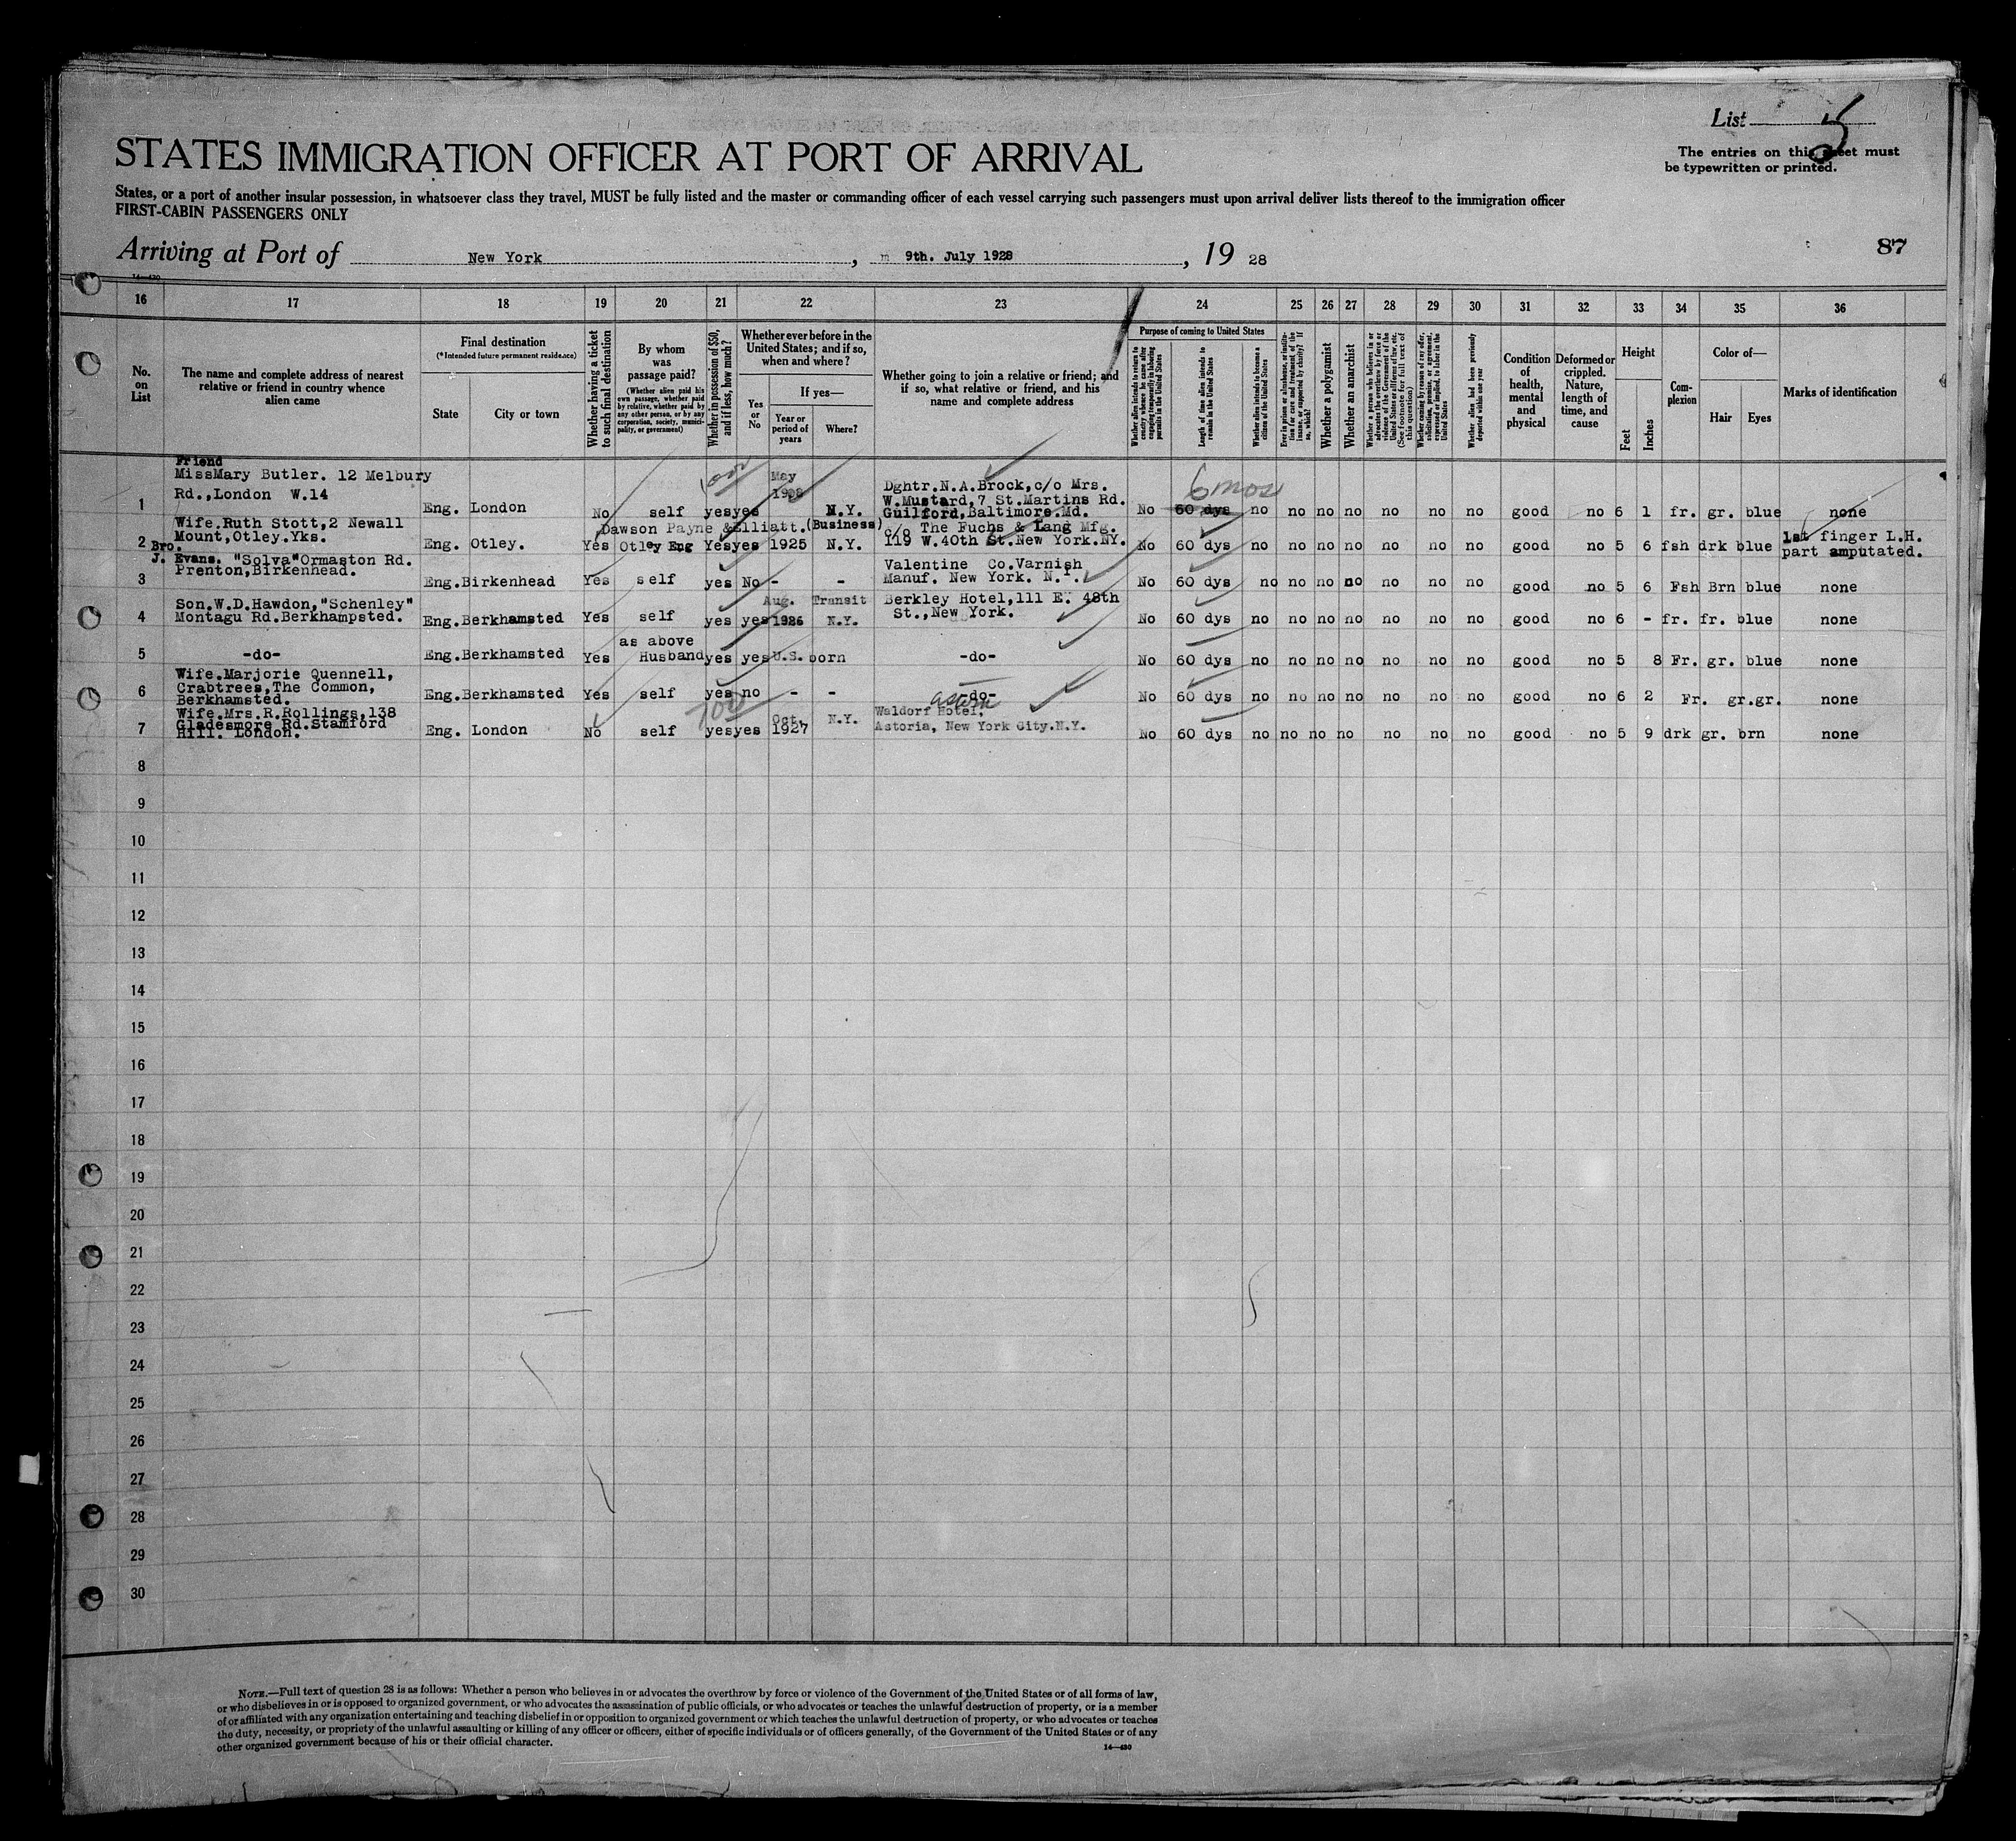 List 5
The entries on this sheet must
be typewritten or printed.
STATES IMMIGRATION OFFICER AT PORT OF ARRIVAL
States, or a port of another insular possession, in whatsoever class they travel, MUST be fully listed and the master or commanding officer of each vessel carrying such passengers must upon arrival deliver lists thereof to the immigration officer
FIRST-CABIN PASSENGERS ONLY
Arriving at Port of New York, 9th. July 1928, 19 28
87
14—430
16 17 18 19 20 21 22 23 24 25 26 27 28 29 30 31 32 33 34 35 36
No. on List
The name and complete address of nearest
relative or friend in country whence
alien came
Final destination
(*Intended future permanent residence)
State
City or town
Whether having a ticket
to such final destination
By whom
was
passage paid?
(Whether alien paid his
own passage, whether paid
by relative, whether paid by
any other person, or by any
corporation, society, munici-
pality, or government)
Whether in possession of $50,
and if less, how much?
Whether ever before in the
United States; and if so,
when and where?
Yes
or
No
If yes—
Year or
period of
years
Where?
Whether going to join a relative or friend; and
if so, what relative or friend, and his
name and complete address
Purpose of coming to United States
Whether alien intends to return to
country whence he came after
engaging temporarily in laboring
pursuits in the United States
Length of time alien intends to
remain in the United States
Whether alien intends to become a
citizen of the United States
Ever in prison or almshouse, or institu-
tion for care and treatment of the
insane, or supported by charity? If
so, which?
Whether a polygamist
Whether an anarchist
Whether a person who believes in or
advocates the overthrow by force or
violence of the Government of the
United States or all forms of law, etc.
(See footnote for full text of
this question)
Whether coming by reason of any offer,
solicitation, promise, or agreement,
expressed or implied, to labor in the
United States
Whether alien had been previously
deported within one year
Condition
of
health,
mental
and
physical
Deformed or
crippled.
Nature,
length of
time, and
cause
Height
Feet
Inches
Com-
plexion
Color of—
Hair
Eyes
Marks of identification
Friend
MissMary Butler. 12 Melbury May Dghtr.N.A.Brock,c/o Mrs. 6 mos
Rd.,London W.14 W.Mustard,7 St.Martins Rd.
1 Eng. London No self yes yes N.Y. Guilford,Baltimore.Md. No 60 dys no no no no no no no good no 6 1 fr. gr. blue none
Wife.Ruth Stott,2 Newall Dawson Payne &Elliatt. (Business) c/o The Fuchs & Lang Mfg.
2 Mount,Otley.Yks. Eng. Otley. Yes Otley Eng Yes yes 1925 N.Y. 119 W.40th St.New York.NY. No 60 dys no no no no no no no good no 5 6 fsh drk blue 1st finger L.H.
part amputated.
Bro.
J. Evans. "Solva"Ormaston Rd. Valentine Co.Varnish
3 Prenton,Birkenhead. Eng.Birkenhead Yes self yes No - - Manuf. New York. N.Y. No 60 dys no no no no no no no good no 5 6 Fsh Brn blue none
Son.W.D.Hawdon,"Schenley" Aug. Transit Berkley Hotel,111 E. 48th
4 Montagu Rd.Berkhampsted. Eng.Berkhamsted Yes self yes yes N.Y. St.,New York. No 60 dys no no no no no no no good no 6 - fr. fr. blue none
as above
5 -do- Eng.Berkhamsted Yes Husband yes yes U.S. born -do- No 60 dys no no no no no no no good no 5 8 Fr. gr. blue none
Wife.Marjorie Quennell,
6 Crabtrees,The Common, Eng.Berkhamsted Yes self yes no - - -do- No 60 dys no no no no no no no good no 6 2 Fr. gr. gr. none
Berkhamsted.
Wife.Mrs.R.Rollings,138 700 Oct. N.Y. Waldorf Hotel,
Gladesmore Rd.Stamford
7 Hill. London. Eng. London No self yes yes 1927 Astoria, New York City.N.Y. No 60 dys no no no no no no no good no 5 9 drk gr. brn none
8
9
10
11
12
13
14
15
16
17
18
19
20
21
22
23
24
25
26
27
28
29
30
NOTE.—Full text of question 28 is as follows: Whether a person who believes in or advocates the overthrow by force or violence of the Government of the United States or of all forms of law,
or who disbelieves in or is opposed to organized government, or who advocates the assassination of public officials, or who advocates or teaches the unlawful destruction of property, or is a member
of or affiliated with any organization entertaining and teaching disbelief in or opposition to organized government or which teaches the unlawful destruction of property, or who advocates or teaches
the duty, necessity, or propriety of the unlawful assaulting or killing of any officer or officers, either of specific individuals or of officers generally, of the Government of the United States or of any
other organized government because of his or their official character.
14—430